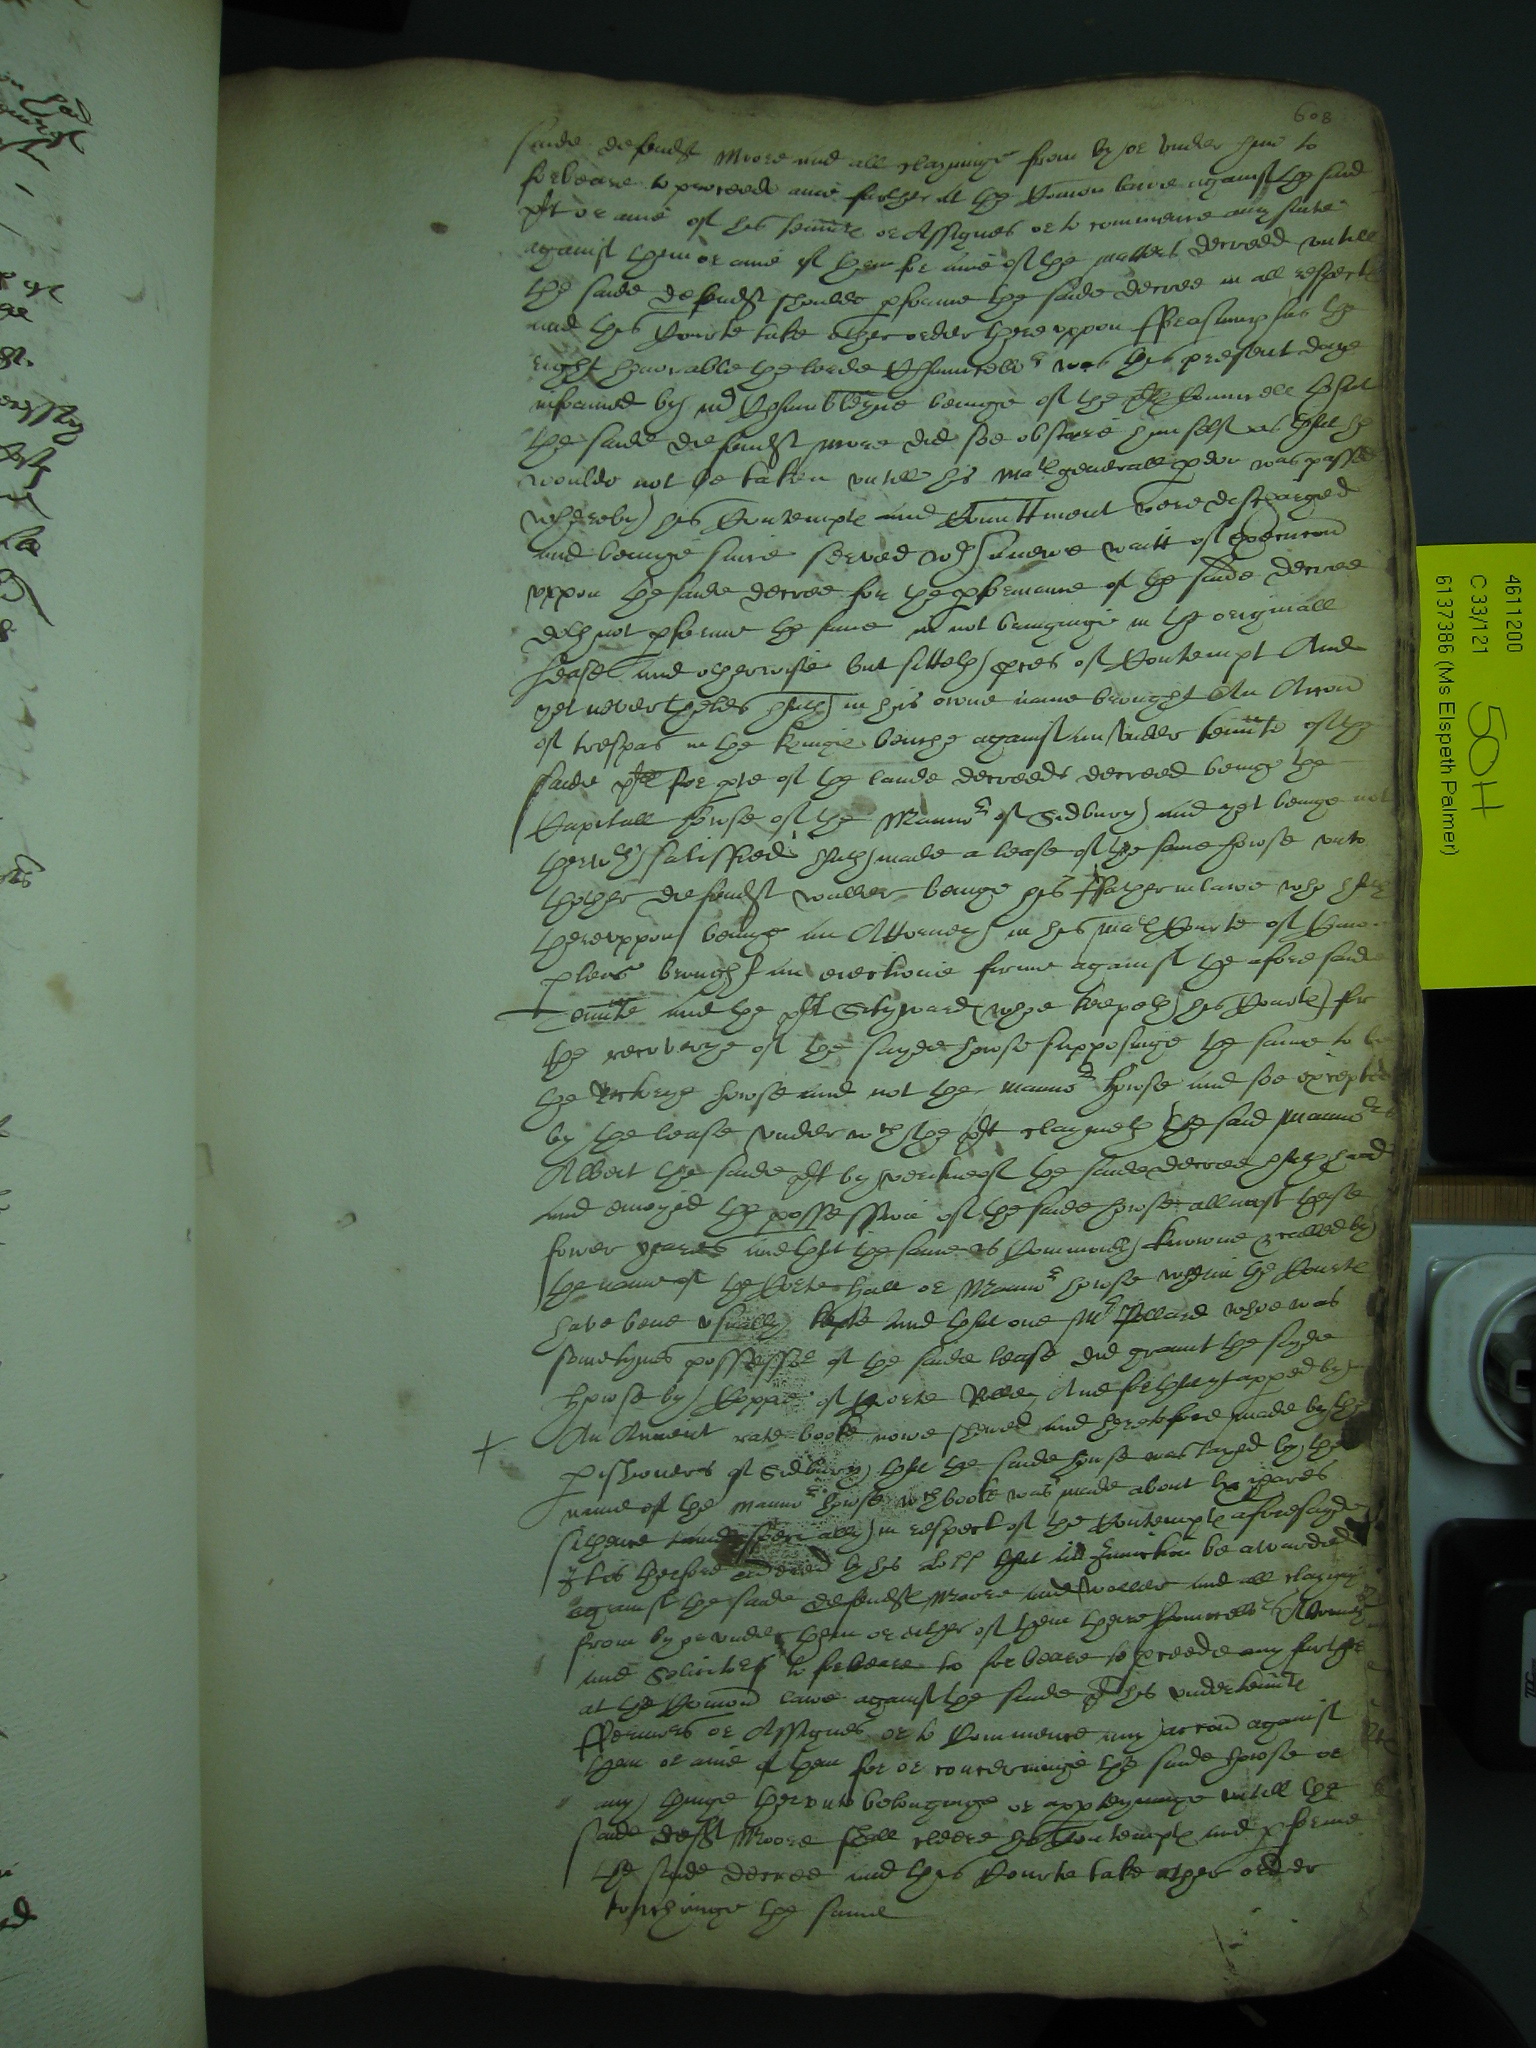 608
saide defendt Moore and all clayminge from by or under him to
forbeare to proceede anie further at the Comon lawe against the said
plt or anie of his tennts or Assignes or to commence any suite
against them or anie of them for anie of the matters decreed untill
the saide defendt shoulde pforme the saide decree in all respects
and this Courte take other order thereuppon Fforasmuch as the
right honorable the lorde Chauncellor was this present daye
informed by mr Chamberleyne beinge of the plts Councell that
the saide defendt Moore did soe obscure himselfe as that he
woulde not be taken untill his Mats generall pdon was passed
whereby his Contempte and Comittment were discharged
and beinge since served wth a newe writt of Execucon
uppon the saide decree for the pformance of the saide decree
doth not pforme the same in not bringinge in the originall
lease and otherwise but sitteth pces of Contempt And
yet nevertheles hath in his owne name brought An Accon
of trespas in the kinges benche against an under tennte of the
saide plt for pte of the lande decreede decreed beinge the
Capitall howse of the Mannor of Sidbury and yet beinge not
therwth satisfied hath made a lease of the same howse unto
thother defendt waller beinge his ffather in lawe who hath
thereuppon beinge an Attorney in his Mats Courte of Comon
pleas brought an eiectione firme against the afore saide
tennte and the plt Stywarde (whoe keepeth his Courte) for
the recoverye of the sayde howse supposinge the same to be
the howse and not the mannor howse and soe excepted
by the lease under wch the plt claymeth the said Mannor
Albeit the saide plt by vertue of the saide decree hath had
and enioyed the possession of the saide howse allmost these
fower yeares and that the same is Commonly knowne & called by
the name of the Courte hall or Mannor howse wherin the Courts
have bene usually kepte and that one Mr Pollard whoe was
sometymes possessed of the saide lease did graunt the sayde
howse by Coppie of Courte Rolle, And for that yt apped by
An Auncient rate booke nowe shewed and heretofore made by the
pishioners of Sidbury that the saide howse was taxed by the
name of the mannor howse wch booke was made about lx yeares
sithence and especially in respect of the Contempte aforesayde
It is therfore ordered by his Lopp that an Iniunction be awarded
against the saide defendts Moore and waller and all clayminge
from by or under them or either of them theire Councellors Attorneys
and Solicitors to forbeare to forbeare to pceede any further
at the Comon lawe against the saide plt his undertennts
ffermors or Assignes or to Commence any accon against
them or anie of them for or concerninge the saide howse or
any thinge therunto belonginge or apperteyninge untill the
saide defts Moore shall cleere his Contempte and pforme
the saide decree and this Courte take other order
touchinge the same
4611200
C 33/121
50H
6137386 (Ms Elspeth Palmer)